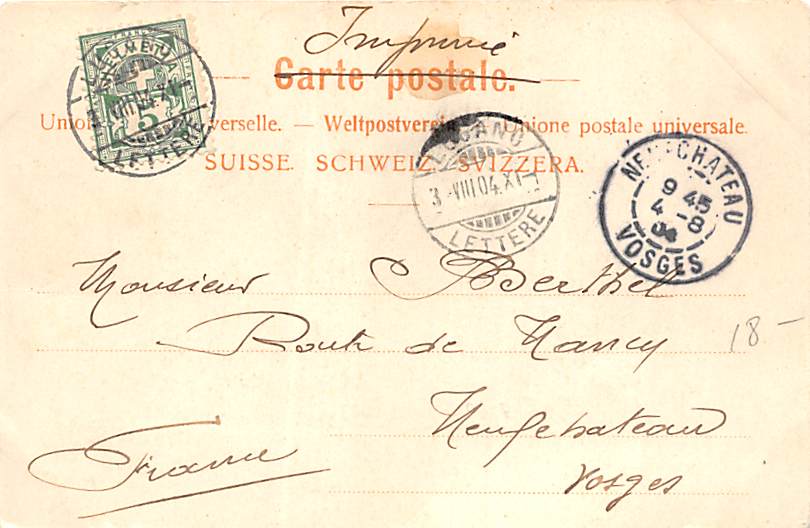 HELVETIA
5
Imprimé
Carte postale.
Union verselle. — Weltpostverein Unione postale universale.
SUISSE. SCHWEIZ. SVIZZERA.
VIII 04 XI
LETTERE
LUGANO
3 -VIII 04. XI-
LETTERE
NEUFCHATEAU
9 45
4 - 8
04
VOSGES
Monsieur Berthel
Route de Nancy
18 -
Neufchateau
France
Vosges